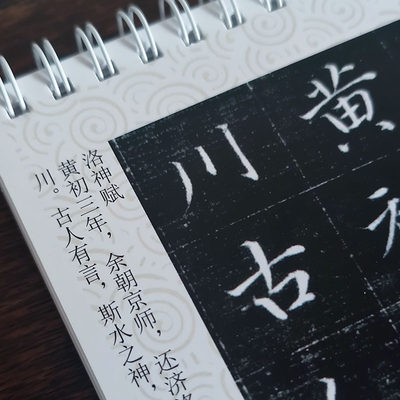 黄
川古
洛神赋
黄初三年，余朝京师，还济
川。古人有言，斯水之神，